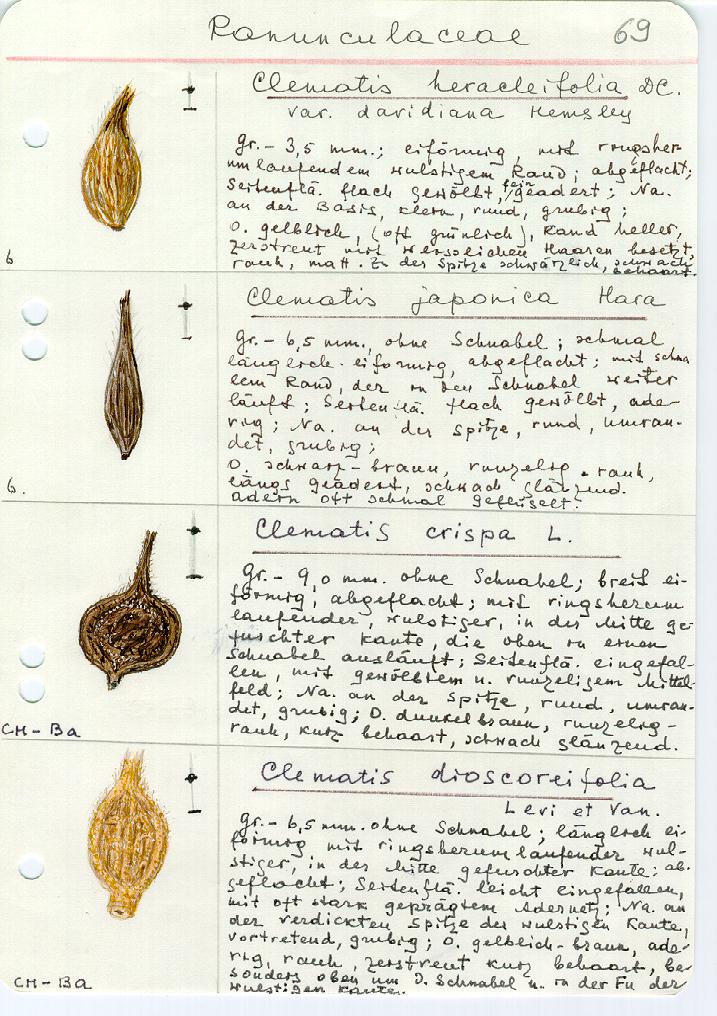 Ranunculaceae 69
Clematis heracleifolia DC.
var. davidiana Hemsley
gr. - 3,5 mm.; eiförmig, mit ringsher-
umlaufendem wulstigem Rand; abgeflacht;
Seitenflä. flach gewölbt, fein geadert; Na.
an der Basis, klein, rund, grubig;
O. gelblich, (oft grünlich), Rand heller,
zerstreut mit weisslichen Haaren besetzt,
rauh, matt. Zu der Spitze schwärzlich, schwach
behaart.
6
Clematis japonica Hara
gr. - 6,5 mm., ohne Schnabel; schmal
länglich-eiförmig, abgeflacht; mit schma
lem Rand, der in den Schnabel weiter
läuft; Seitenflä. flach gewölbt, ade-
rig; Na. an der Spitze, rund, umran-
det, grubig;
O. schwarz-braun, runzelig-rauh,
längs geädert, schwach glänzend.
adern oft schmal
6.
Clematis crispa L.
gr. - 9,0 mm. ohne Schnabel; breit ei-
förmig, abgeflacht; mit ringsherum
laufender, wulstiger, in der Mitte ge-
furchter Kante, die oben in einen
Schnabel ausläuft; Seitenflä. eingefal-
len, mit gewölbtem u. runzeligem Mittel-
feld; Na. an der Spitze, rund, umran-
det, grubig; O. dunkelbraun, runzelig-
rauh, kurz behaart, schwach glänzend.
CH-Ba
Clematis dioscoreifolia
Levi et Van.
gr. - 6,5 mm. ohne Schnabel; länglich ei-
förmig mit ringsherumlaufender wul-
stiger, in der Mitte gefurchter Kante; ab-
geflacht; Seitenflä. leicht eingefallen,
mit oft stark geprägtem Adernetz; Na. an
der verdickten Spitze der wulstigen Kante,
vortretend, grubig; O. gelblich-braun, ade-
rig, rauh, zerstreut kurz behaart, be-
sonders oben um d. Schnabel u. in der Fu der
wulstigen Kante.
CH-Ba